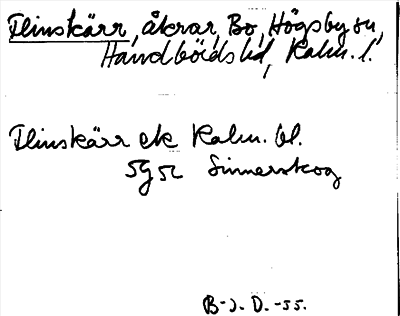 Flinskärr, åkrar, Bo, Högsby sn,
Handbörds hd, Kalm. l.
Flinskärr ek Kalm. bl.
5g 52 Simmerskog
B-J. D. -55.